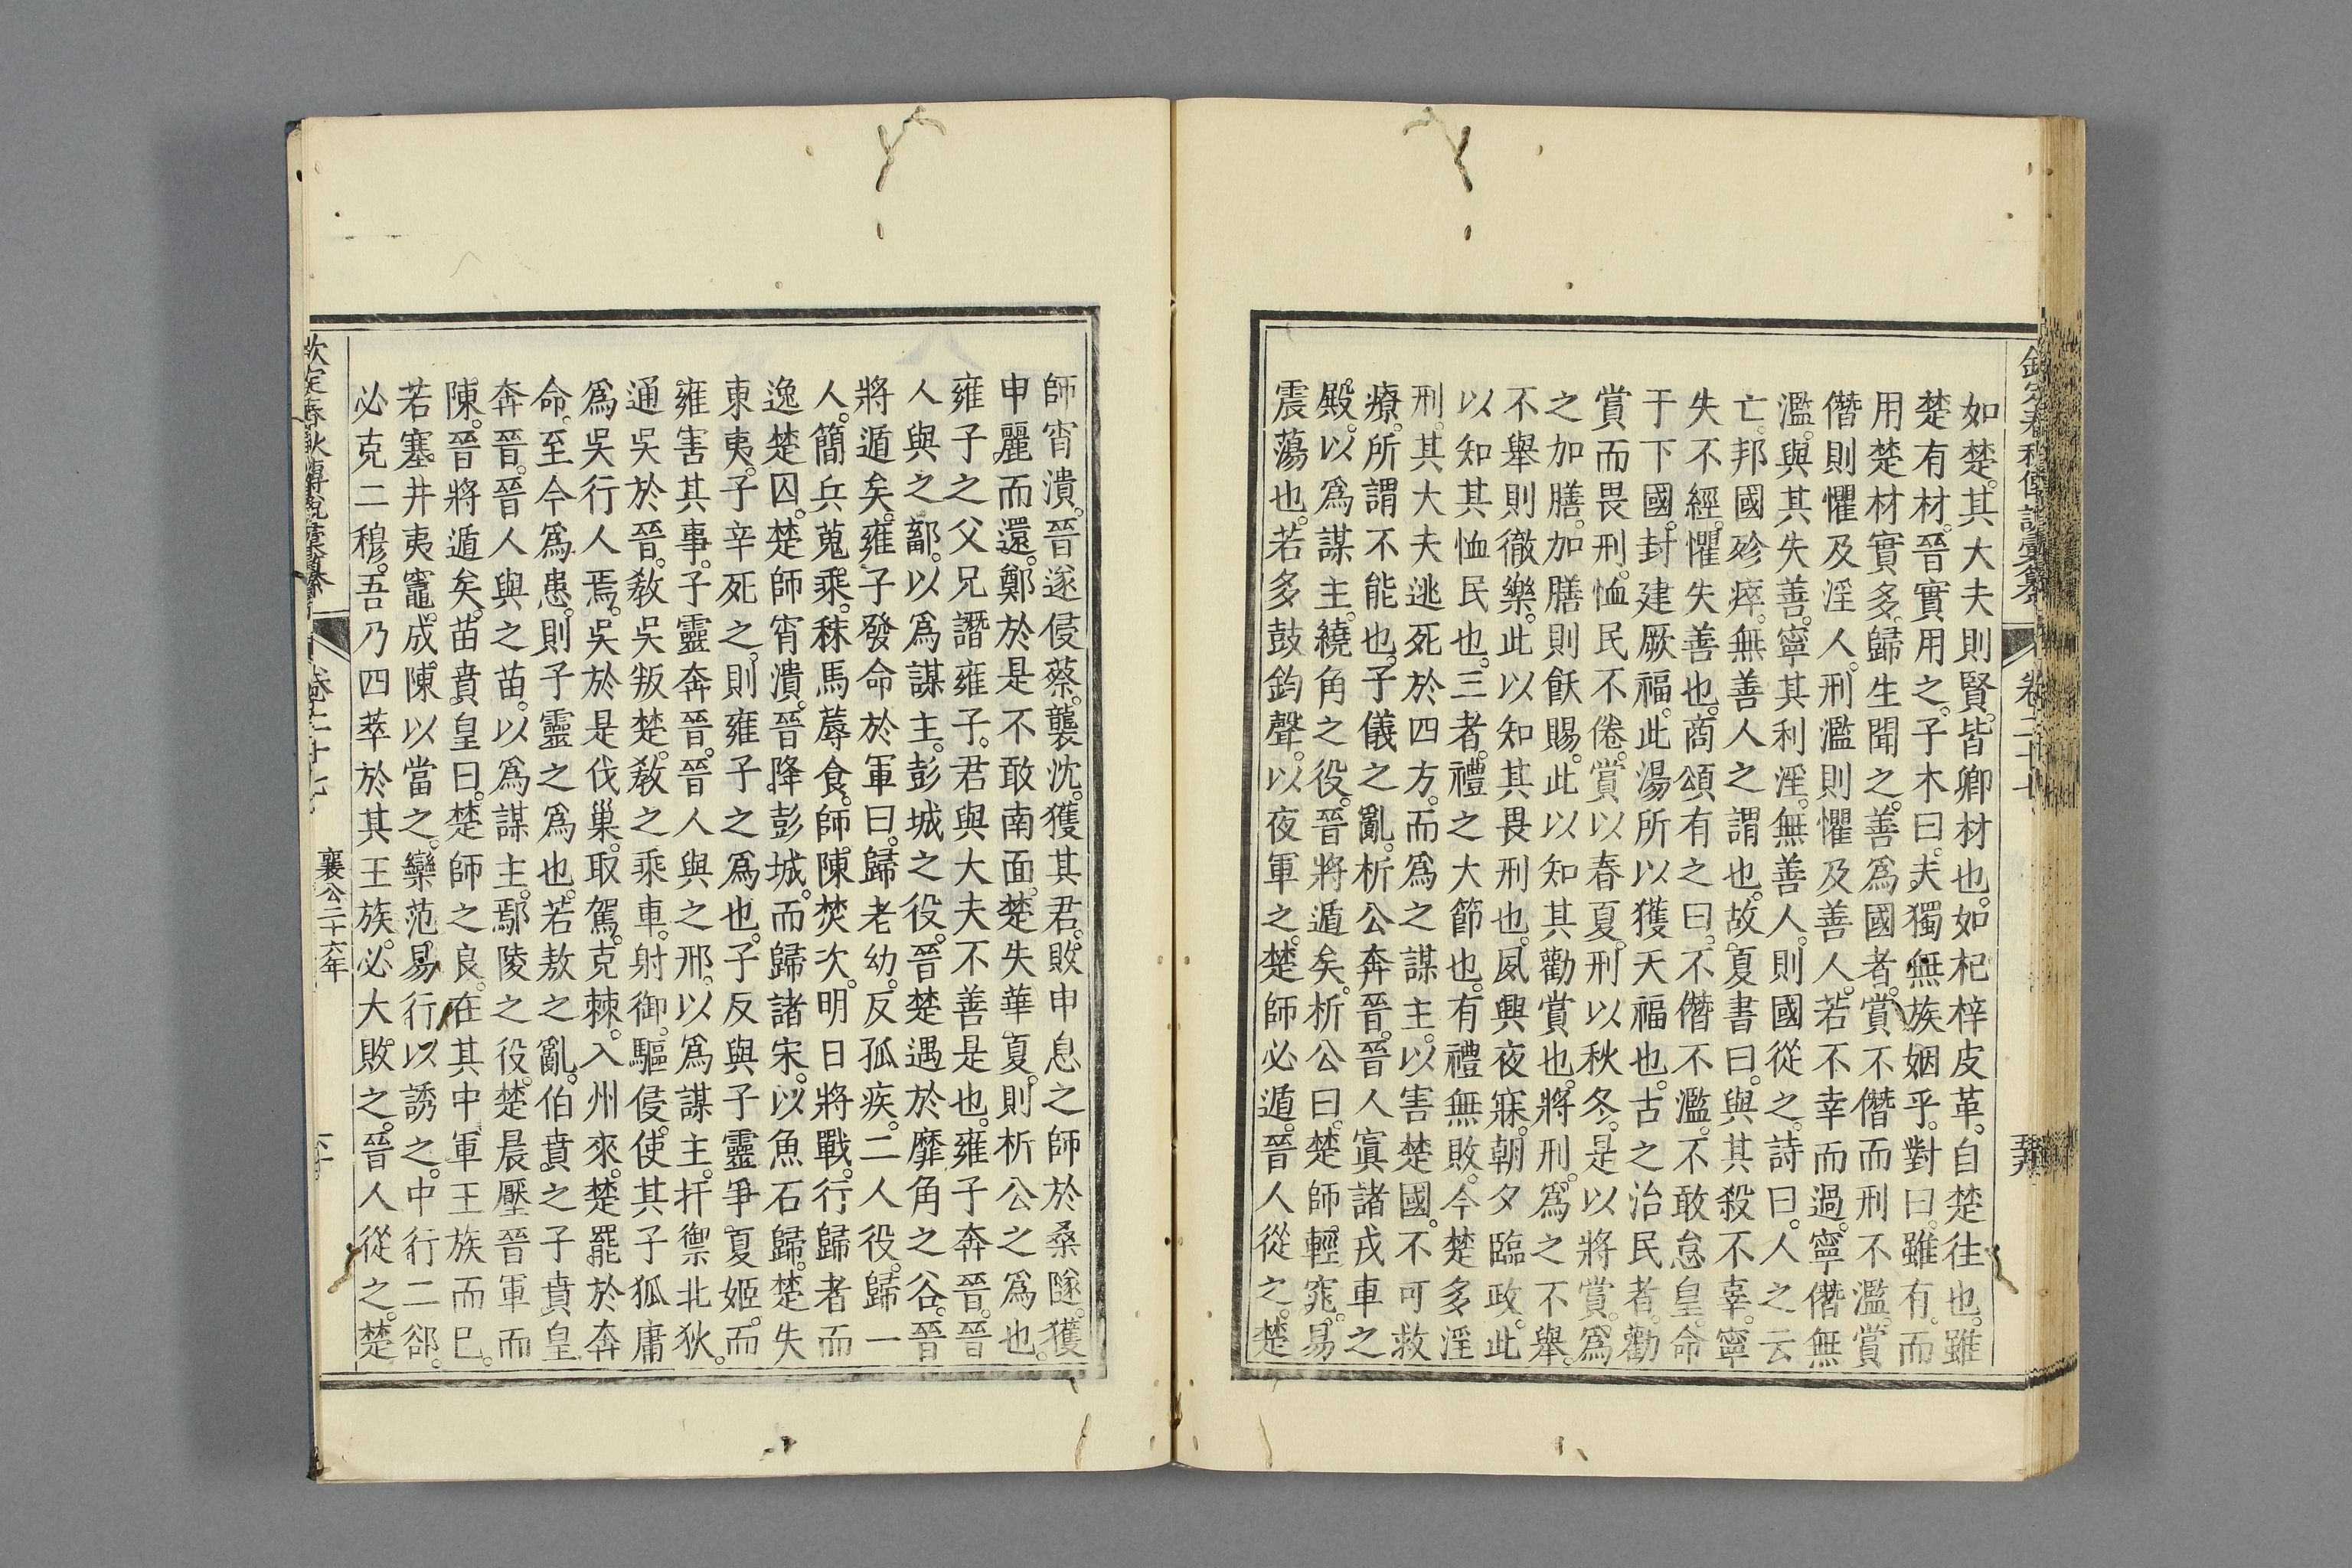 如楚。其大夫則賢。皆卿材也。如杞梓皮革。自楚往也。雖
楚有材。晉實用之。子木曰。夫獨無族姻乎。對曰。雖有。而
用楚材實多。歸生聞之。善為國者。賞不僭而刑不濫。賞
僭則懼及淫人。刑濫則懼及善人。若不幸而過。寧僭無
濫。與其失善。寧其利淫。無善人。則國從之。詩曰。人之云
亡。邦國殄瘁。無善人之謂也。故夏書曰。與其殺不辜。寧
失不經。懼失善也。商頌有之曰。不僭不濫。不敢怠皇。命
于下國。封建厥福。此湯所以獲天福也。古之治民者。勸
賞而畏刑。恤民不倦。賞以春夏。刑以秋冬。是以將賞。為
之加膳。加膳則飫賜。此以知其勸賞也。將刑。為之不舉。
不舉則徹樂。此以知其畏刑也。夙興夜寐。朝夕臨政。此
以知其恤民也。三者。禮之大節也。有禮無敗。今楚多淫
刑。其大夫逃死於四方。而為之謀主。以害楚國。不可救
療。所謂不能也。子儀之亂。析公奔晉。晉人寘諸戎車之
殿。以為謀主。繞角之役。晉將遁矣。析公曰。楚師輕窕。易
震蕩也。若多鼓鈞聲。以夜軍之。楚師必遁。晉人從之。楚
欽定春秋傳說彙纂 卷二十七
師宵潰。晉遂侵蔡。襲沈。獲其君。敗申息之師於桑隧。獲
申麗而還。鄭於是不敢南面。楚失華夏。則析公之為也。
雍子之父兄譖雍子。君與大夫不善是也。雍子奔晉。晉
人與之鄐。以為謀主。彭城之役。晉楚遇於靡角之谷。晉
將遁矣。雍子發命於軍曰。歸老幼。反孤疾。二人役。歸一
人。簡兵蒐乘。秣馬蓐食。師陳焚次。明日將戰。行歸者而
逸楚囚。楚師宵潰。晉降彭城。而歸諸宋。以魚石歸。楚失
東夷。子辛死之。則雍子之為也。子反與子靈爭夏姬。而
雍害其事。子靈奔晉。晉人與之邢。以為謀主。扞禦北狄。
通吳於晉。教吳叛楚。教之乘車。射御。驅侵。使其子狐庸
為吳行人焉。吳於是伐巢。取駕。克棘。入州來。楚罷於奔
命。至今為患。則子靈之為也。若敖之亂。伯賁之子賁皇
奔晉。晉人與之苗。以為謀主。鄢陵之役。楚晨壓晉軍而
陳。晉將遁矣。苗賁皇曰。楚師之良。在其中軍王族而已。
若塞井夷竈。成陳以當之。欒范易行以誘之。中行二郤。
必克二穆。吾乃四萃於其王族。必大敗之。晉人從之。楚
欽定春秋傳說彙纂 卷二十七 襄公二十六年